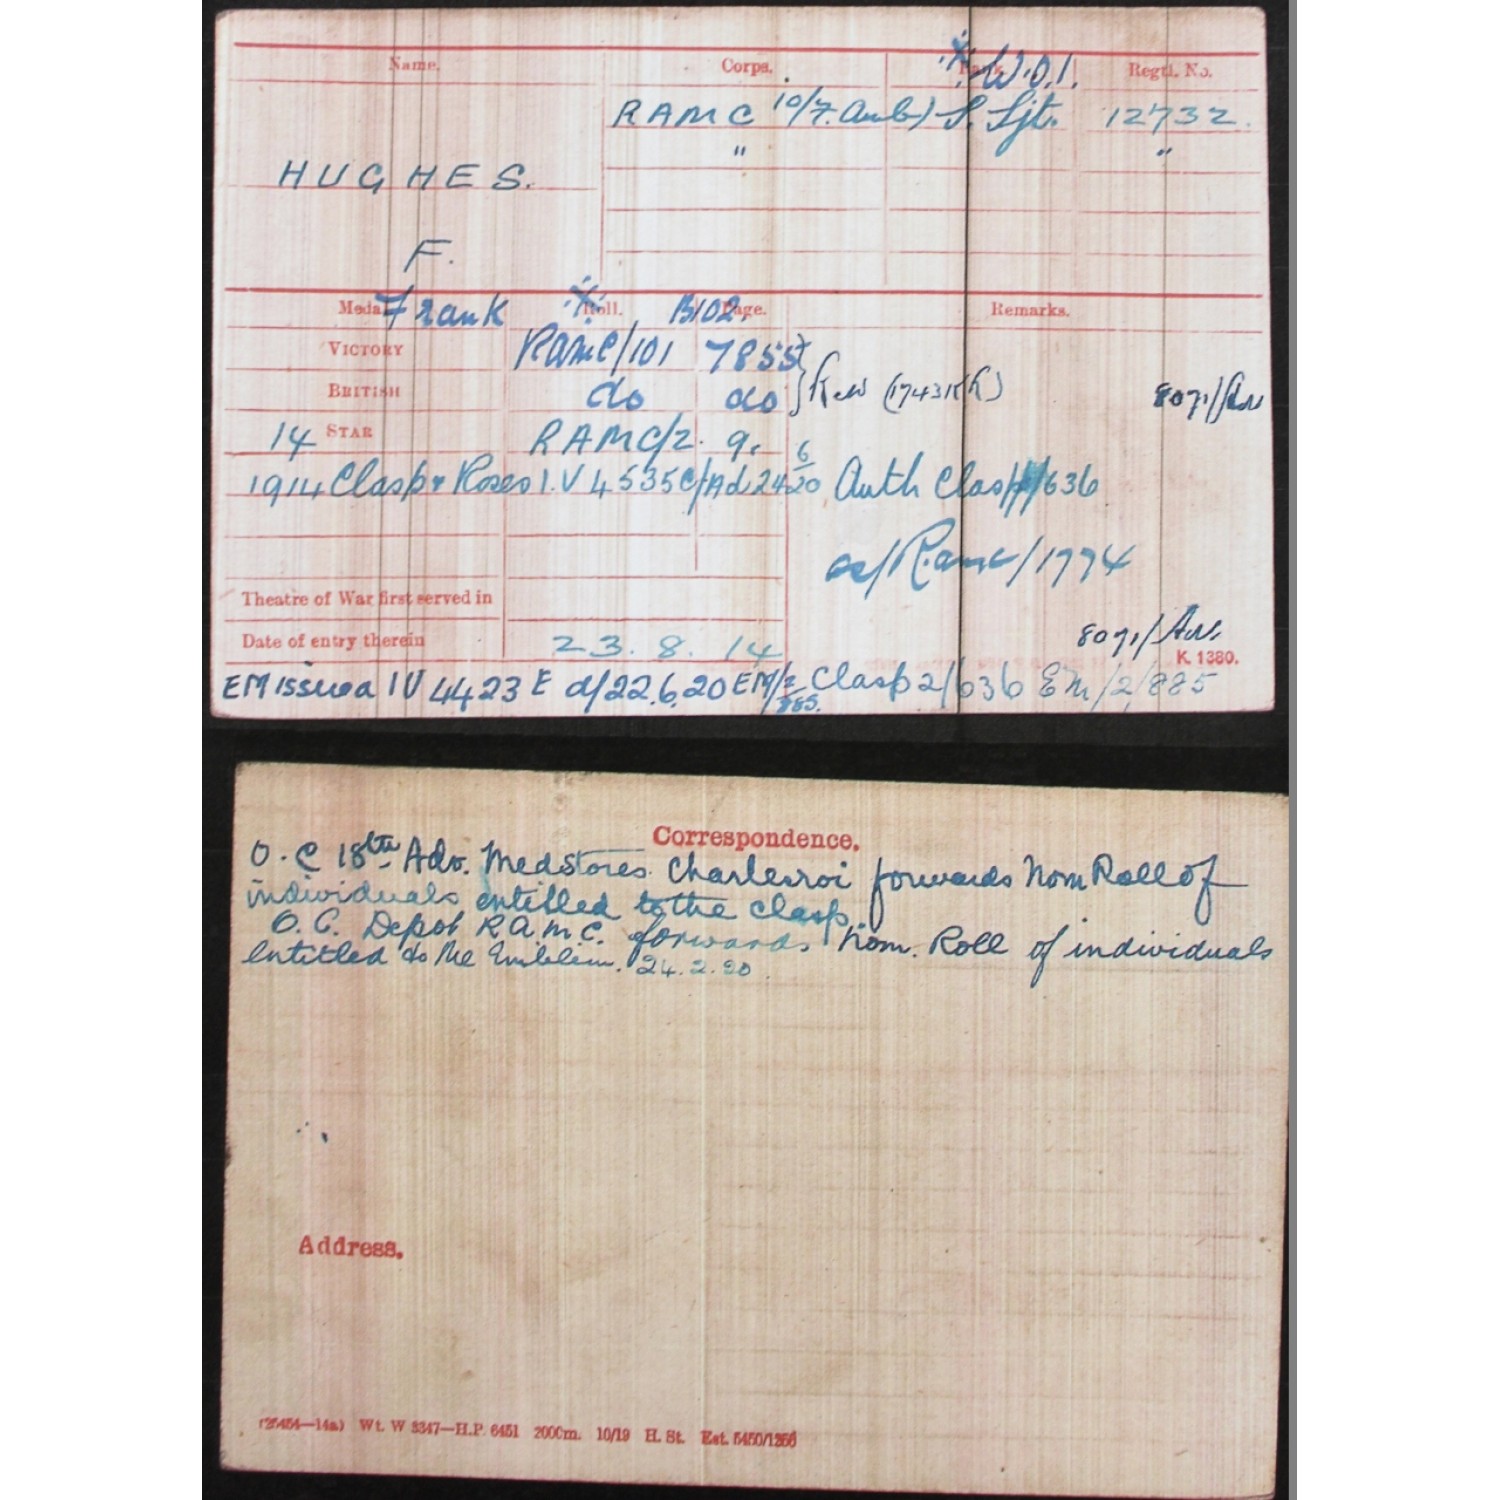 Name. Corps. Rank. W.O.1. Regtl. No.
RAMC 10/F. Amb) S. Sjt. 12732.
" "
HUGHES.
F.
Medal Frank Roll. B102. Page. Remarks.
VICTORY RAMC/101 7855
BRITISH do do (1743 KR) 8071/Adv
14 STAR RAMC/2. 9.
1914 Clasp & Roses I.V 4535E/Ad 24 6/20 Auth Clasp/636
RAMC/1774
8071/Adv.
Theatre of War first served in
Date of entry therein 23. 8. 14
K. 1380.
EM issued IV 4423 E d/22.6.20 EM/2/885. Clasp 2/636 EM/2/885
Correspondence.
O.C 18th Adv. Med Stores Charleroi forwards Nom Roll of
individuals entitled to the clasp
O.C. Depot R.A.M.C. forwards Nom. Roll of individuals
entitled to the Emblem. 24.2.20.
Address.
(25454—14a) Wt. W 3347—H.P. 6451 2000m. 10/19 H. St. Est. 5450/1366